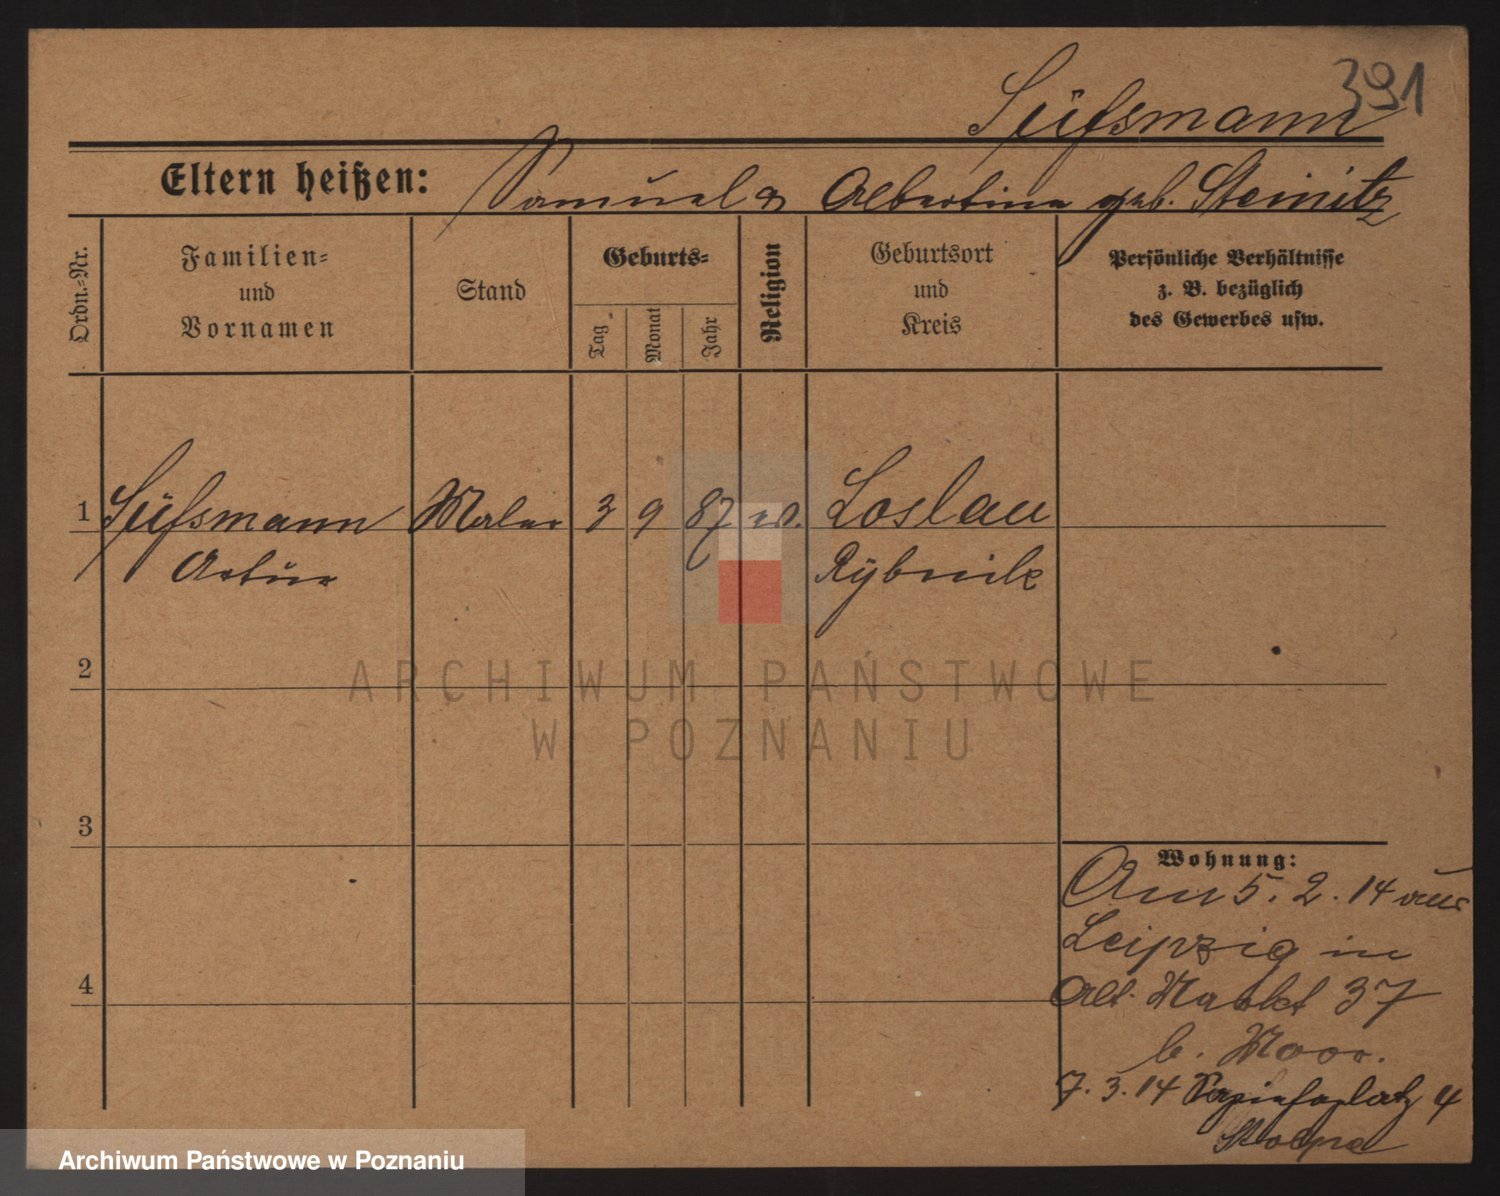 391
Süßsmann
Eltern heißen: Samuel & Albertine geb. Steinitz
Ordn.-Nr.
Familien-
und
Vornamen
Stand
Geburts-
Tag
Monat
Jahr
Religion
Geburtsort
und
Kreis
Persönliche Verhältnisse
z. B. bezüglich
des Gewerbes usw.
1 Süßsmann Maler 3 9 87 Loslau
Artur Rybnik
ARCHIWUM PAŃSTWOWE
W POZNANIU
2
3
4
Wohnung:
Am 5. 2. 14 aus
Leipzig in
Alt. Markt 37
b. Moor.
7. 3. 14 Sapiehaplatz 4
Archiwum Państwowe w Poznaniu